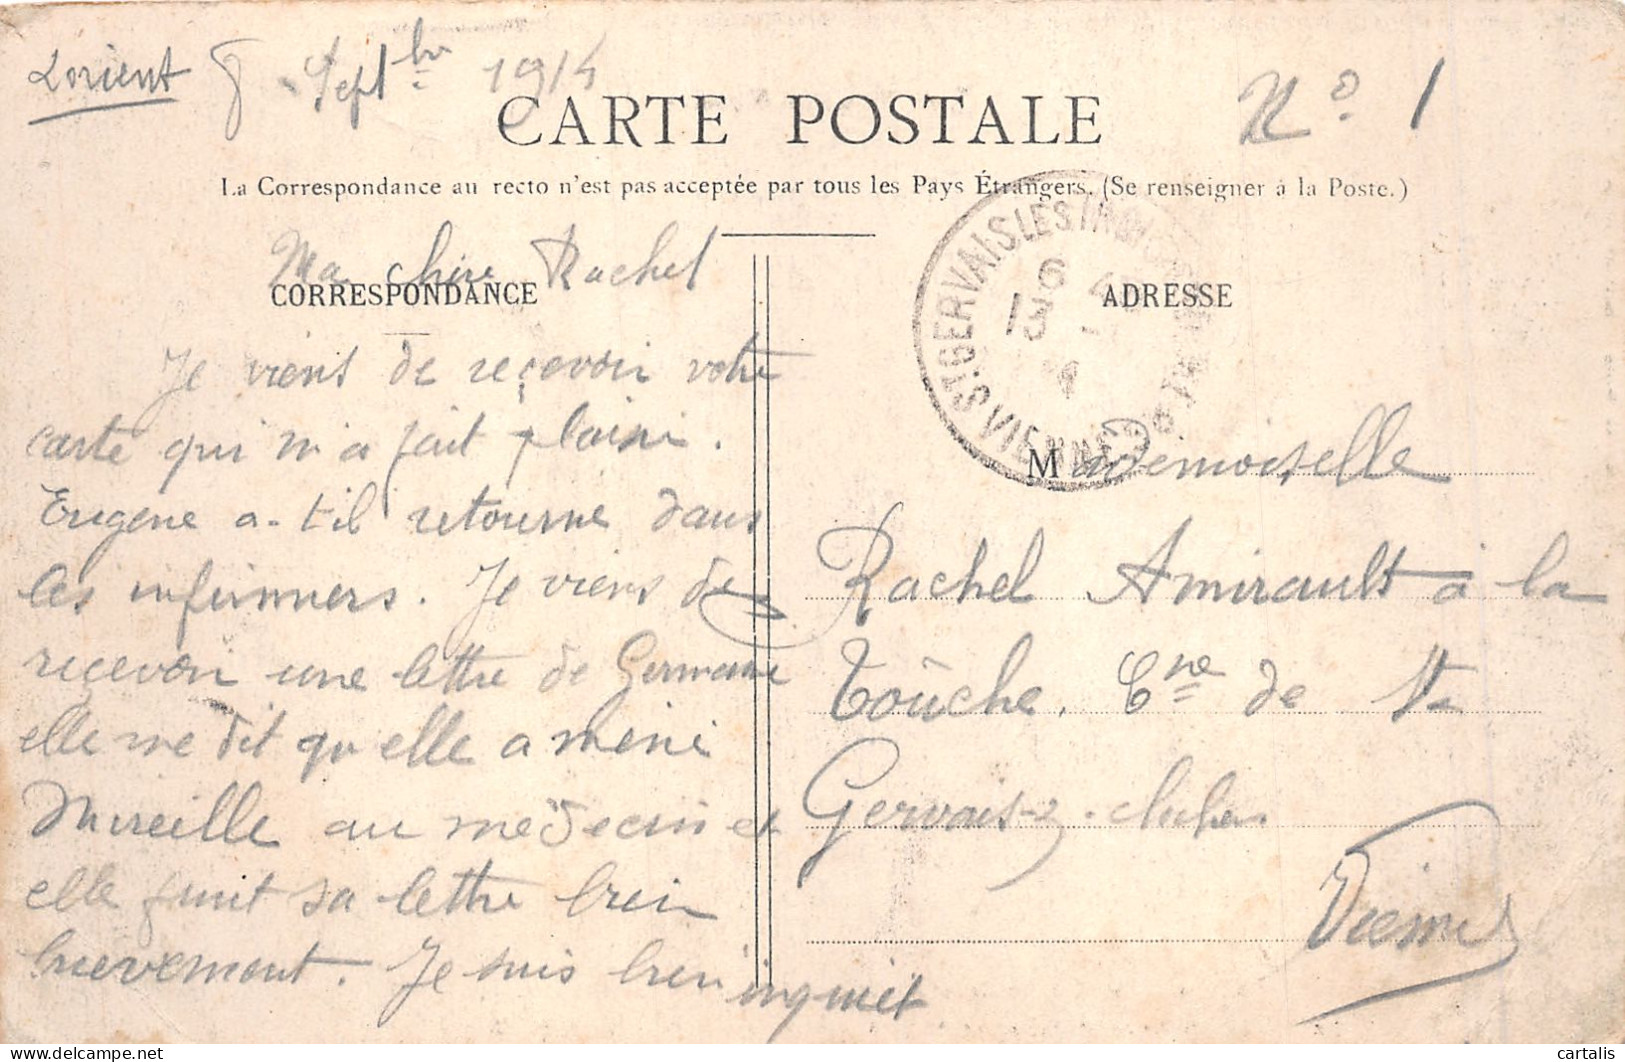 Lorient 8 Septbre 1914
N° 1
CARTE POSTALE
La Correspondance au recto n'est pas acceptée par tous les Pays Étrangers. (Se renseigner à la Poste.)
CORRESPONDANCE
Ma chère Rachel
Je viens de reçevoir votre
carte qui m'a fait plaisir.
Eugène a-t-il retourné dans
les infirmiers. Je viens de
reçevoir une lettre de Germaine
elle me dit qu'elle a mené
Mireille au médecin et
elle finit sa lettre bien
brievement. Je suis bien inquiet
ADRESSE
ST GERVAIS-LES-TROIS-CLOCHERS
VIENNE
6 4
13
Mademoiselle
Rachel Amirault à la
Toûche. Cne de St
Gervais-3-clochers
Vienne
cartalis